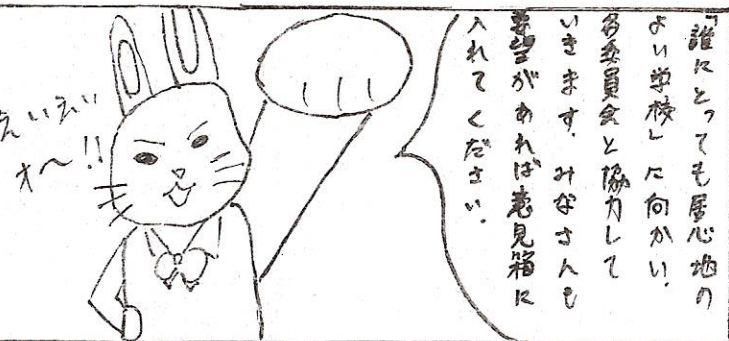 「誰にとっても居心地の
よい学校」に向かい、
各委員会と協力して
いきます。みなさんも
要望があれば意見箱に
入れてください。
えいえい
オ〜!!